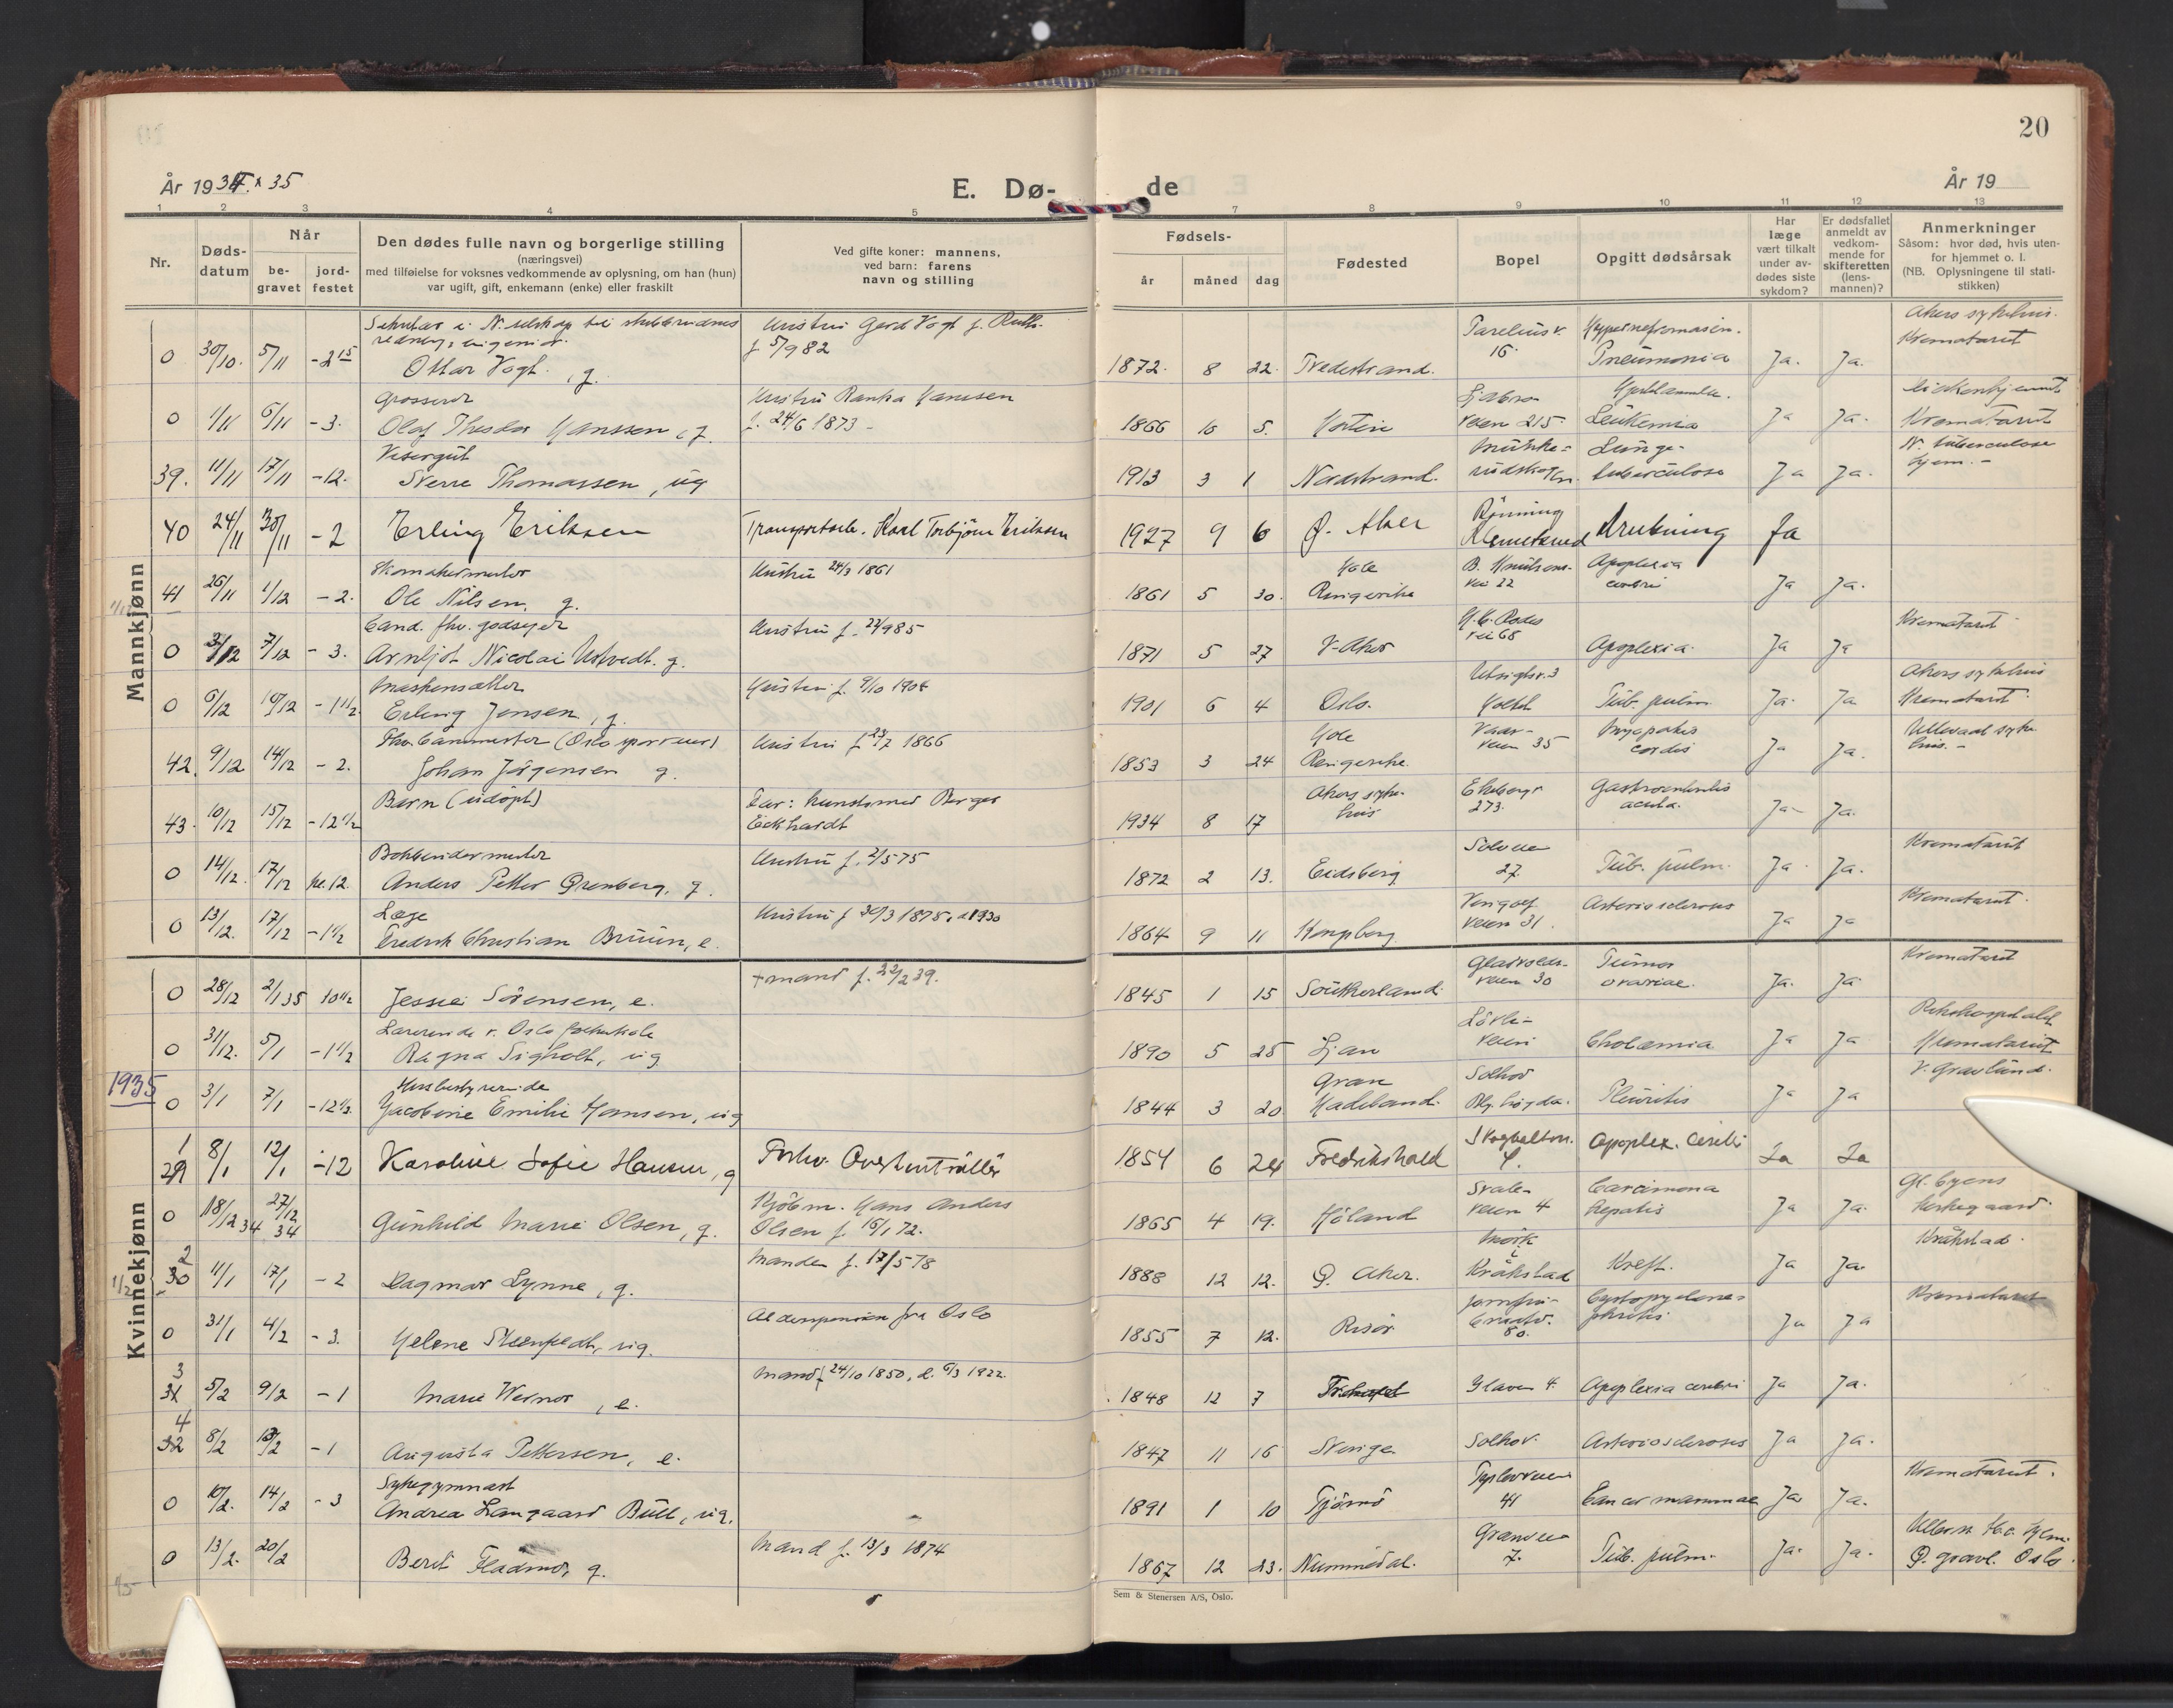 20
År 1934 & 35
E. Dø-
de
År 19
1 2 3 4 5
7 8 9 10 11 12 13
Nr.
Døds-
datum
Når
be-
gravet
jord-
festet
Den dødes fulle navn og borgerlige stilling
(næringsvei)
med tilføielse for voksnes vedkommende av oplysning, om han (hun)
var ugift, gift, enkemann (enke) eller fraskilt
Ved gifte koner: mannens,
ved barn: farens
navn og stilling
Fødsels-
år
måned
dag
Fødested
Bopel
Opgitt dødsårsak
Har
læge
vært tilkalt
under av-
dødes siste
sykdom?
Er dødsfallet
anmeldt av
vedkom-
mende for
skifteretten
(lens-
mannen)?
Anmerkninger
Såsom: hvor død, hvis uten-
for hjemmet o. l.
(NB. Oplysningene til stati-
stikken)
Mannkjønn
0 30/10. 5/11 -2 15 Ottar Vogt, g. Hustru Gerd Vogt f.
f 5/9 82
1872. 8 22. Tvedestrand. 16. Pneumonia Ja. Ja. Akers sykehus.
Krematoriet
0 1/11 6/11 -3. Grosserer
Olaf Theodor Hanssen, g. Hustru Hanssen
f. 24/6 1873
1866 10 5. Horten veien 215. Leukemia Ja Ja. Krematoriet
39. 11/11 17/11 -12. Visergut
Sverre Thomassen, ug
1913 3 1 Nordstrand. Lunge-
tuberculose Ja Ja. N. tuberculose
hjem.
40 24/11 30/11 -2 Erling Eriksen Transportarb. Karl Torbjörn Eriksen
1927 9 6 Ø. Aker Rönning
Klemetsrud Drukning Ja
41 26/11 1/12 -2. Skomakermester
Ole Nilsen, g. Hustru 24/3 1861
1861 5 30. Hole
Ringerike B. Knudsens-
vei 22 Apoplexia
cerebri Ja Ja.
0 7/12 -3. Cand. fhv. godseier
Arnljot Nicolai Ustvedt. g. Hustru f. 22/9 85
1871 5 27 V-Aker vei 68 Apoplexia Ja Ja Krematoriet
0 6/12 10/12 -1 1/2. Maskinsetter
Erling Jensen, g. Hustru f. 9/10 1904
1901 6 4 Oslo. Utsigtsv. 3 Tub. pulm. Ja. Ja Akers sykehus
Krematoriet
42. 9/12 14/12 -2. Johan Jørgensen g. Hustru f 23/7 1866
1853 3 24 Hole
Ringerike. veien 35 Myopatia
cordis Ja Ja. Ullevaal syke
hus.
43. 10/12 15/12 -12 1/2 Barn (udöpt) Far: kunstsmed Birger
Eickhardt
1934 8 17 Akers syke-
hus Ekebergv
273. Gastroenteritis
acuta. Ja Ja.
0 14/12. 17/12 kl. 12. Bokbindermester
Anders Petter Grenberg, g. Hustru f. 2/5 75
1872 2 13. Eidsberg Solveien
27. Tub. pulm. Ja Ja. Krematoriet
0 13/12. 17/12 -1 1/2 Læge
Fredrik Christian Bruun, e. Hustru f 30/3 1875, d 1930
1864 9 11 Kongsberg veien 31. Arteriosclerosis Ja Ja Krematoriet.
Kvinnekjønn
0 28/12 2/1 35 10 1/2 Jessie Sörensen, e. + mand f. 22/2 39.
1845 1 15 veien 30 Tumor
ovariae. Ja. Ja Krematoriet
0 31/12. 5/1 -1 1/2 Lærerinde v. Oslo folkeskole
Ragna Sigholt, ug
1890 5 25 Ljan Lövli-
veien Cholæmia Ja Ja Rikshospitalet
Krematoriet
1935
0 3/1 7/1 -12 1/2. Husbestyrerinde
Jacobine Emilie Hansen, ug
1844 3 20 Gran
Hadeland. Solhov Pleuritis Ja Ja V. Gravlund.
1
29 8/1 12/1 -12 Karoline Sofie Hansen, g Forhv. Overkontrollör
1854 6 24 Fredrikshald 4. Apoplex. cerebri Ja Ja
0 18/12 34 27/12 34 Gunhild Marie Olsen, g. Kjöbm. Hans Anders
Olsen f. 15/1 72.
1865 4 19. Höland Svale-
veien 4 Carcinoma
hepatis Ja Ja. Gl. byens
kirkegaard.
2
30 11/1 17/1 -2 Dagmar Lynne, g. Manden f. 17/5 78
1888 12 12. Ø. Aker. Mörk
i
Kråkstad Kreft. Ja Ja. Kråkstad.
0 31/1 4/2 -3. Helene Steenfeldt, ug. Alderspension fra Oslo
1855 7 12. Risör 80. Cystopyelone-
phritis Ja Ja Krematoriet
3
31 5/2 9/2 -1 Marie Werner, e. Mand f 24/10 1850, d. 6/3 1922.
1848 12 7 Apoplexia cerebri Ja Ja.
4
32 8/2 13/2 -1 Augusta Pettersen, e.
1847 11 16 Sverige Solhov. Arteriosclerosis Ja Ja.
0 10/2. 14/2 -3 Sykegymnast
Andrea Langaard Bull, ug.
1891 1 10 Tjömö 41 Cancer mammae Ja Ja. Krematoriet.
0 13/2. 20/2 Berit Fladmo, g. Mand f. 13/3 1874
1867 12 23. Nummedal. 7. Tub. pulm. Ja. Ja. Ø. gravl. Oslo.
Sem & Stenersen A/S, Oslo.